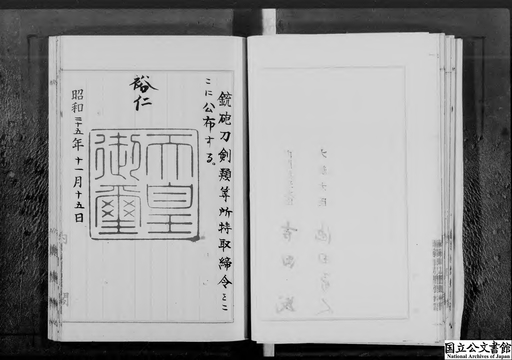 銃砲刀剣類等所持取締令をこ
こに公布する。
裕仁
天皇
御璽
昭和二十五年十一月十五日
国立公文書館
National Archives of Japan